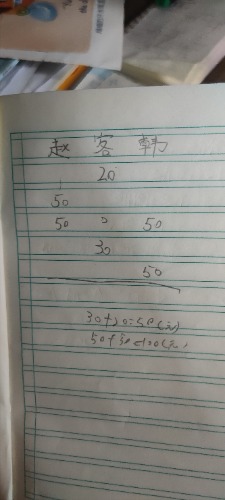 赵 客 韩
20
50
50 0 50
30
50
30+20=50(元)
50+50=100(元)